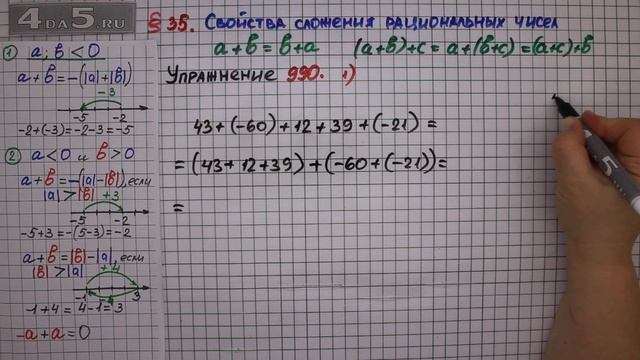 4DA5.RU
§ 35. Свойства сложения рациональных чисел
a+b=b+a (a+b)+c=a+(b+c)=(a+c)+b
Упражнение 990. 1)
43+(-60)+12+39+(-21)=
=(43+12+39)+(-60+(-21))=
=
1) a; b < 0
a+b=-(|a|+|b|)
-3
-5 -2
-2+(-3)=-2-3=-5
2) a<0 и b>0
a+b=-(|a|-|b|), если
|a|>|b| +3
-5 -2
-5+3=-(5-3)=-2
a+b=|b|-|a|, если
|b|>|a| +4
-1 3
-1+4=4-1=3
-a+a=0